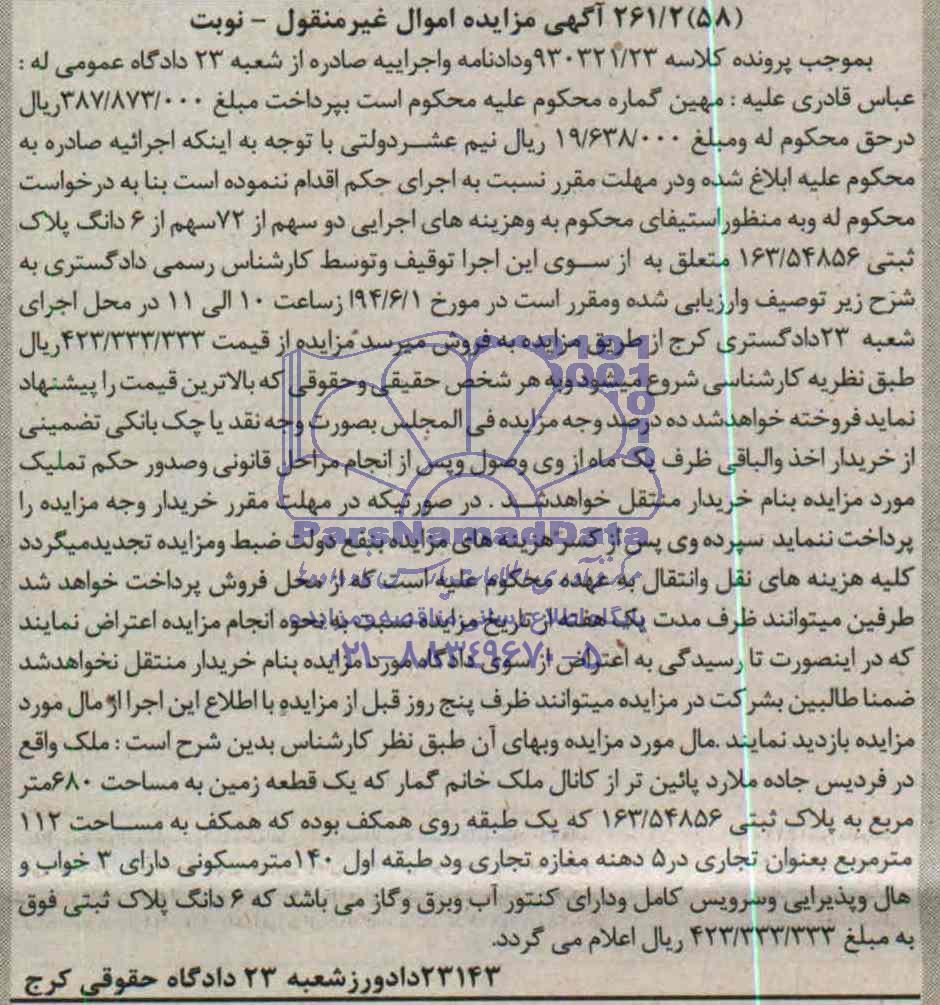 (۵۸)۲۶۱/۲ آگهی مزایده اموال غیرمنقول - نوبت
بموجب پرونده کلاسه ۹۳۰۳۲۱/۲۳ودادنامه واجراییه صادره از شعبه ۲۳ دادگاه عمومی له :
عباس قادری علیه : مهین گماره محکوم علیه محکوم است بپرداخت مبلغ ۳۸۷/۸۷۳/۰۰۰ریال
درحق محکوم له ومبلغ ۱۹/۶۳۸/۰۰۰ ریال نیم عشردولتی با توجه به اینکه اجرائیه صادره به
محکوم علیه ابلاغ شده ودر مهلت مقرر نسبت به اجرای حکم اقدام ننموده است بنا به درخواست
محکوم له وبه منظوراستیفای محکوم به وهزینه های اجرایی دو سهم از ۷۲سهم از ۶ دانگ پلاک
ثبتی ۱۶۳/۵۴۸۵۶ متعلق به از سوی این اجرا توقیف وتوسط کارشناس رسمی دادگستری به
شرح زیر توصیف وارزیابی شده ومقرر است در مورخ ۹۴/۶/۱ا زساعت ۱۰ الی ۱۱ در محل اجرای
شعبه ۲۳دادگستری کرج از طریق مزایده به فروش میرسد مزایده از قیمت ۴۲۳/۳۳۳/۳۳۳ریال
طبق نظریه کارشناسی شروع میشود وبه هر شخص حقیقی وحقوقی که بالاترین قیمت را پیشنهاد
نماید فروخته خواهدشد ده درصد وجه مزایده فی المجلس بصورت وجه نقد یا چک بانکی تضمینی
از خریدار اخذ والباقی ظرف یک ماه از وی وصول وپس از انجام مراحل قانونی وصدور حکم تملیک
مورد مزایده بنام خریدار منتقل خواهدشد . در صورتیکه در مهلت مقرر خریدار وجه مزایده را
ParsNamadData
پرداخت ننماید سپرده وی پس از کسر هزینه های مزایده بنفع دولت ضبط ومزایده تجدیدمیگردد
کلیه هزینه های نقل وانتقال به عهده محکوم علیه است که از محل فروش پرداخت خواهد شد
طرفین میتوانند ظرف مدت یک هفته از تاریخ مزایده نسبت به نحوه انجام مزایده اعتراض نمایند
که در اینصورت تا رسیدگی به اعتراض از سوی دادگاه مورد مزایده بنام خریدار منتقل نخواهدشد
۰۲۱-۸۸۳۴۹۶۷۰-۵
ضمنا طالبین بشرکت در مزایده میتوانند ظرف پنج روز قبل از مزایده با اطلاع این اجرا از مال مورد
مزایده بازدید نمایند .مال مورد مزایده وبهای آن طبق نظر کارشناس بدین شرح است : ملک واقع
در فردیس جاده ملارد پائین تر از کانال ملک خانم گمار که یک قطعه زمین به مساحت ۶۸۰متر
مربع به پلاک ثبتی ۱۶۳/۵۴۸۵۶ که یک طبقه روی همکف بوده که همکف به مساحت ۱۱۲
مترمربع بعنوان تجاری در۵ دهنه مغازه تجاری ود طبقه اول ۱۴۰مترمسکونی دارای ۳ خواب و
هال وپذیرایی وسرویس کامل ودارای کنتور آب وبرق وگاز می باشد که ۶ دانگ پلاک ثبتی فوق
به مبلغ ۴۲۳/۳۳۳/۳۳۳ ریال اعلام می گردد.
۲۳۱۴۳دادورزشعبه ۲۳ دادگاه حقوقی کرج